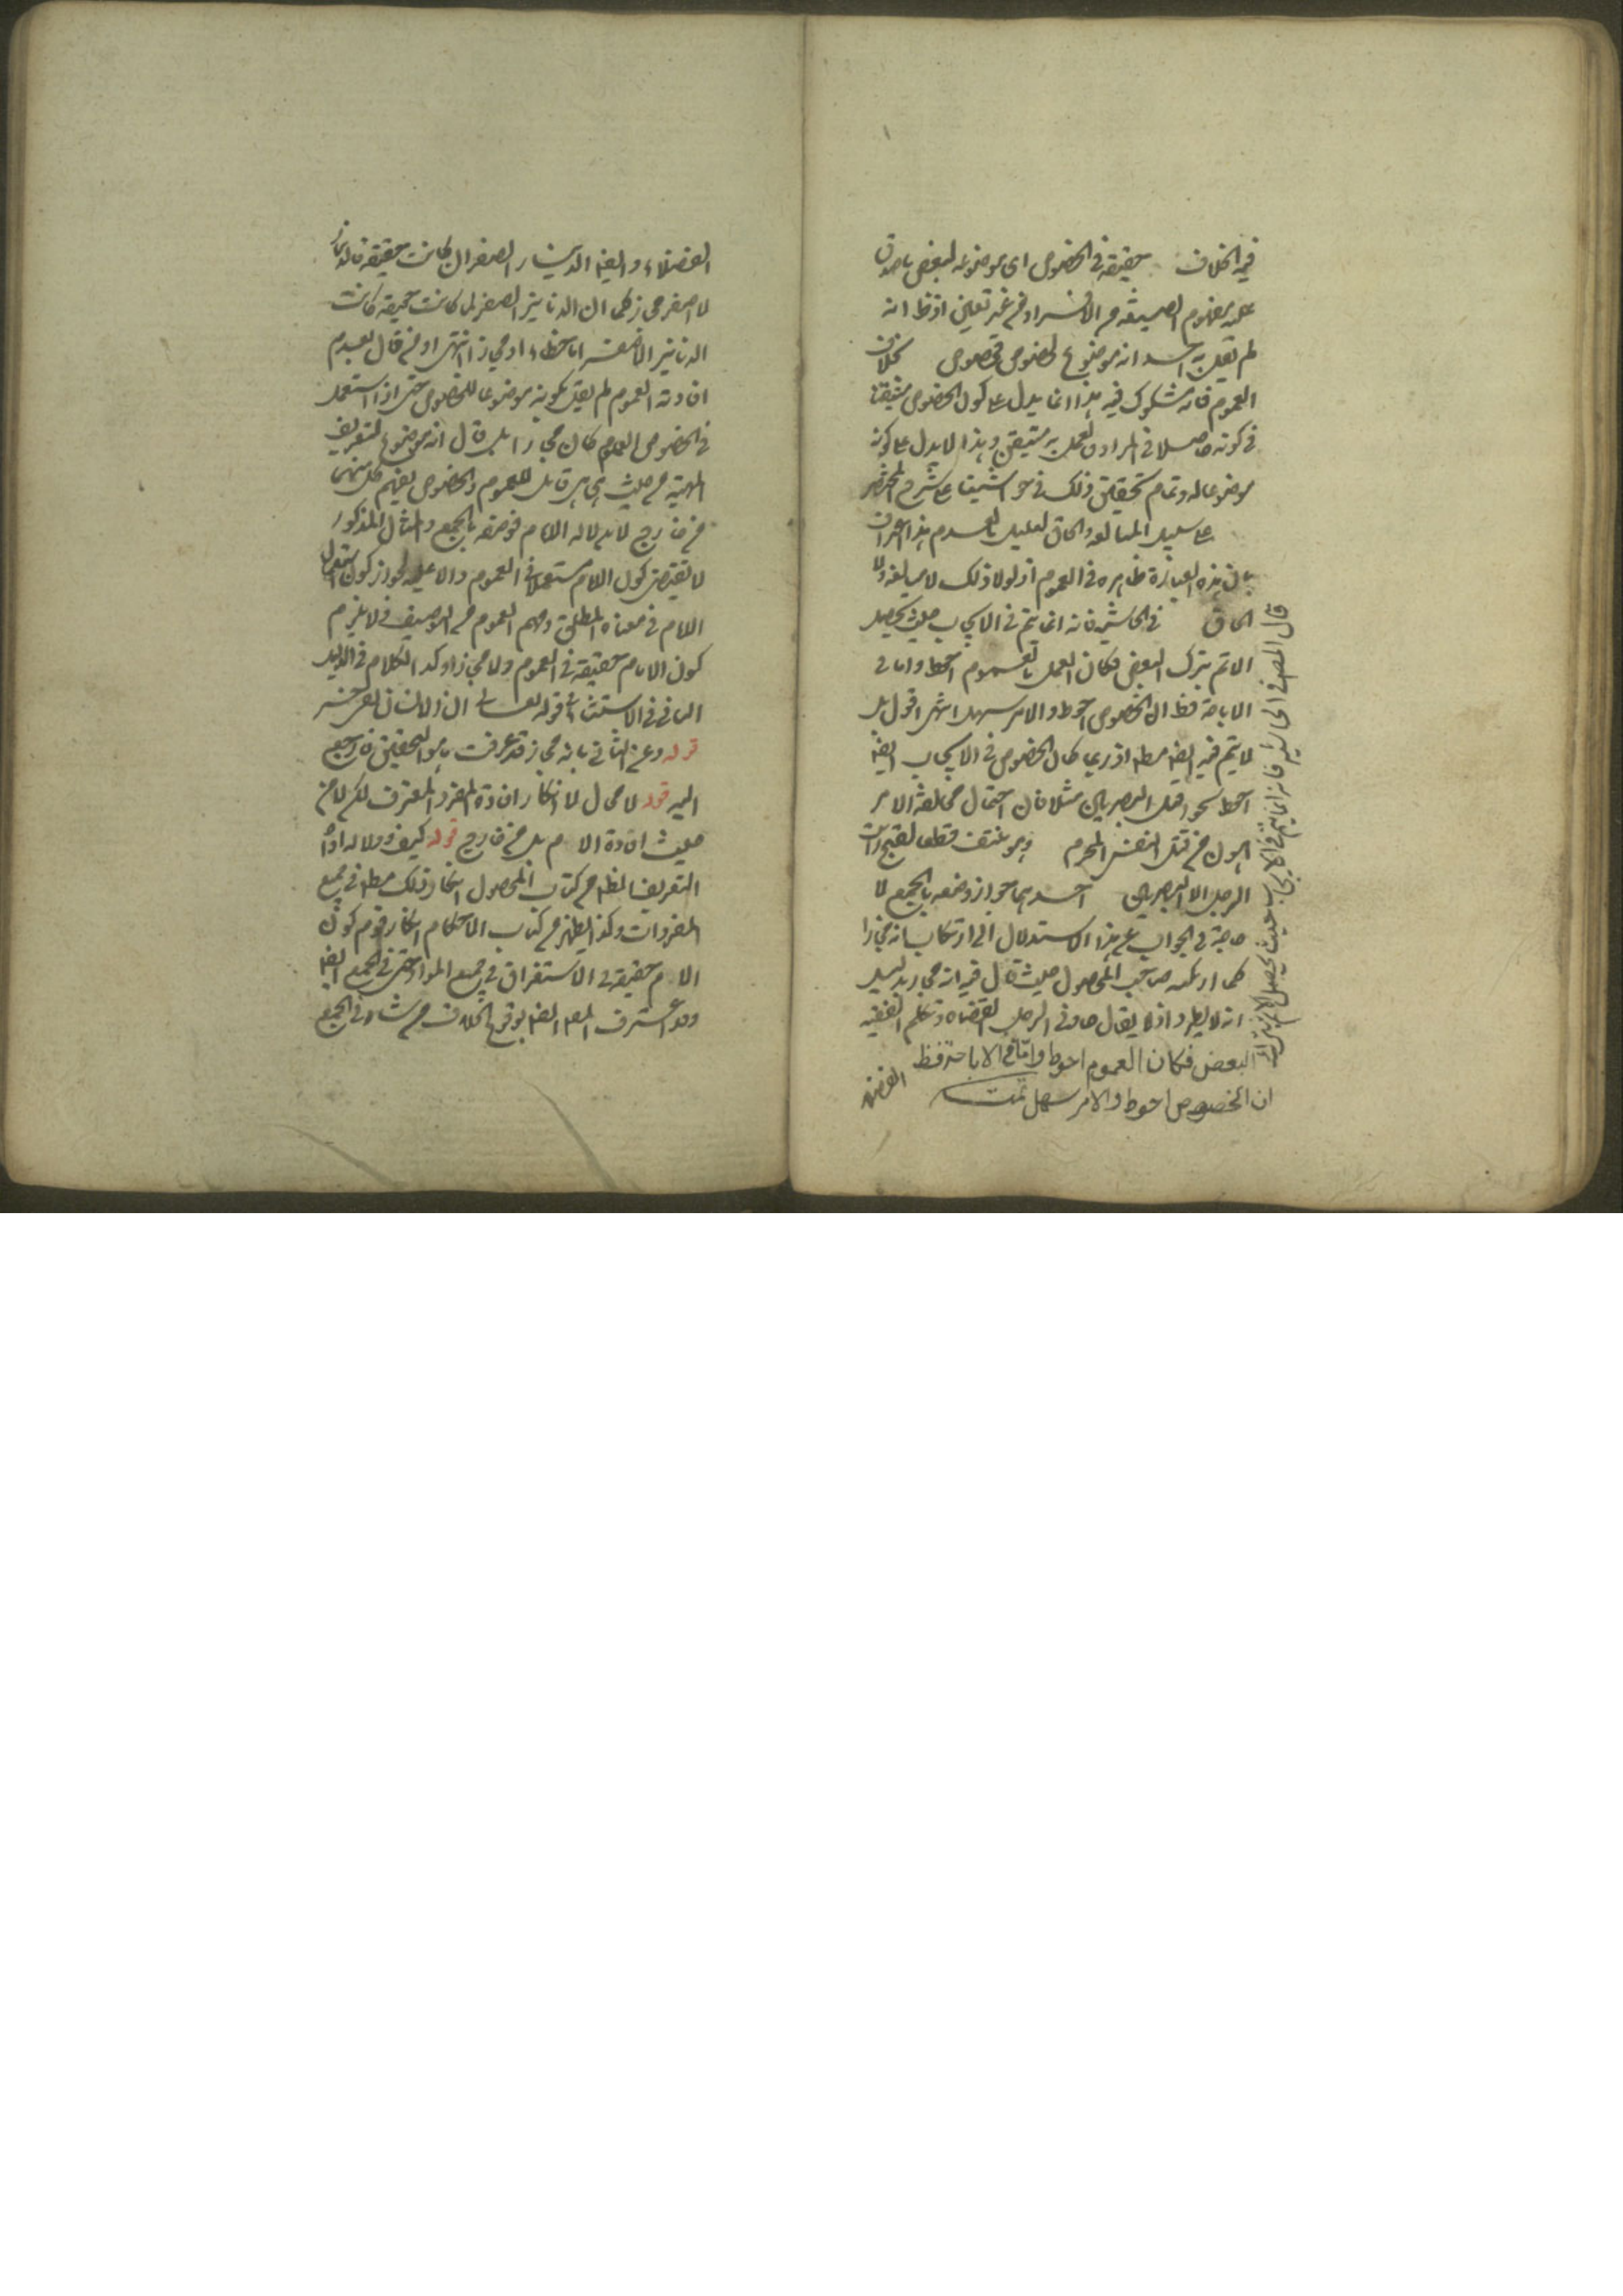 فيه الخلاف حقيقة في الخصوص اى موضوعه لبعض ما صدق
عليه مفهوم الصيغة من الافراد من غير تعيين اذ ظ انه
لم يقل به احد انه موضوع لخصوص مخصوص بخلاف
العموم فانه مشكوك فيه هذا انما يدل على كون الخصوص متيقنا
في كونه حاصلا في المراد والعمل به متيقن وهذا لا يدل على كونه
موضوعا له وتمام تحقيق ذلك في حواشينا على شرح المختصر
على سبيل المبالغة والحاق القليل بالعدم هذا اعتراف
بان هذه العبارة ظاهره في العموم اذ لولا ذلك لا مبالغة ولا
الحاق في الحاشية فانه انما يتم في الايجاب حيث يحصل
الاثم بترك البعض فكان العمل بالعموم احوط واما في
الاباحة فظ ان الخصوص احوط والامر سهل انتهى اقول بل
لا يتم فيه ايضا مطلقا اذ ربما كان الخصوص في الايجاب ايضا
احوط نحو اقتل البصريين مثلا فان احتمال مخالفة الامر
اهون من قتل النفس المحرم وهو منتف قطعا لقبح رايت
الرجل الا البصريين احدهما جواز وصفه بالجمع لا
حاجة في الجواب عن هذا الاستدلال الى ارتكاب انه مجازا
كما ارتكبه صاحب المحصول حيث قال فيه انه مجاز بدليل
انه لا يطرد اذ لا يقال جاءني الرجل القضاه وتكلم الفقيه
الفضلاء
قال المصنف في الحاشية فانه انما يتم في الايجاب حيث يحصل الاثم بترك
البعض فكان العموم احوط واما في الاباحة فظ
ان الخصوص احوط والامر سهل تمت
الفضلاء وايضا الدينار الصفر ان كانت حقيقة فالدينار
الاصفر مجاز كما ان الدنانير الصفر لما كانت حقيقة كانت
الدنانير الاصفر اما خطاء او مجاز انتهى اذ من قال بعدم
افادته العموم لم يقل بكونه موضوعا للخصوص حتى اذا استعمل
في الخصوص العموم كان مجازا بل قال انه موضوع لتعريف
المهية من حيث هى هى قابل للعموم والخصوص يفهم كل منهما
من خارج لا بدلالة اللام فوصفه بالجمع والمثال المذكور
لا يقتضى كون اللام مستعملا في العموم والا عليه لجواز كون استعمال
اللام في معناه المطلق وفهم العموم من التوصيف فلا يلزم
كون اللام حقيقة في العموم ولا مجازا وكذا الكلام في الدليل
الثاني في الاستثناء قوله تعالى ان الانسان لفى خسر
قوله وعن الثاني بانه مجاز قد عرفت ما هو التحقيق فارجع
اليه قوله لا مجال لانكار افادة المفرد المعرف لكن لا من
حيث افادة اللام بل من خارج قوله كيف ودلالة اداة
التعريف الظ من كتاب المحصول انكار ذلك مطلقا في جميع
المفردات وكذا يظهر من كتاب الاحكام انكار قوم كون
اللام حقيقة في الاستغراق في جميع المواد حتى في الجمع ايضا
وقد اعترف المصنف ايضا بوقوع الخلاف من شاذ في الجمع